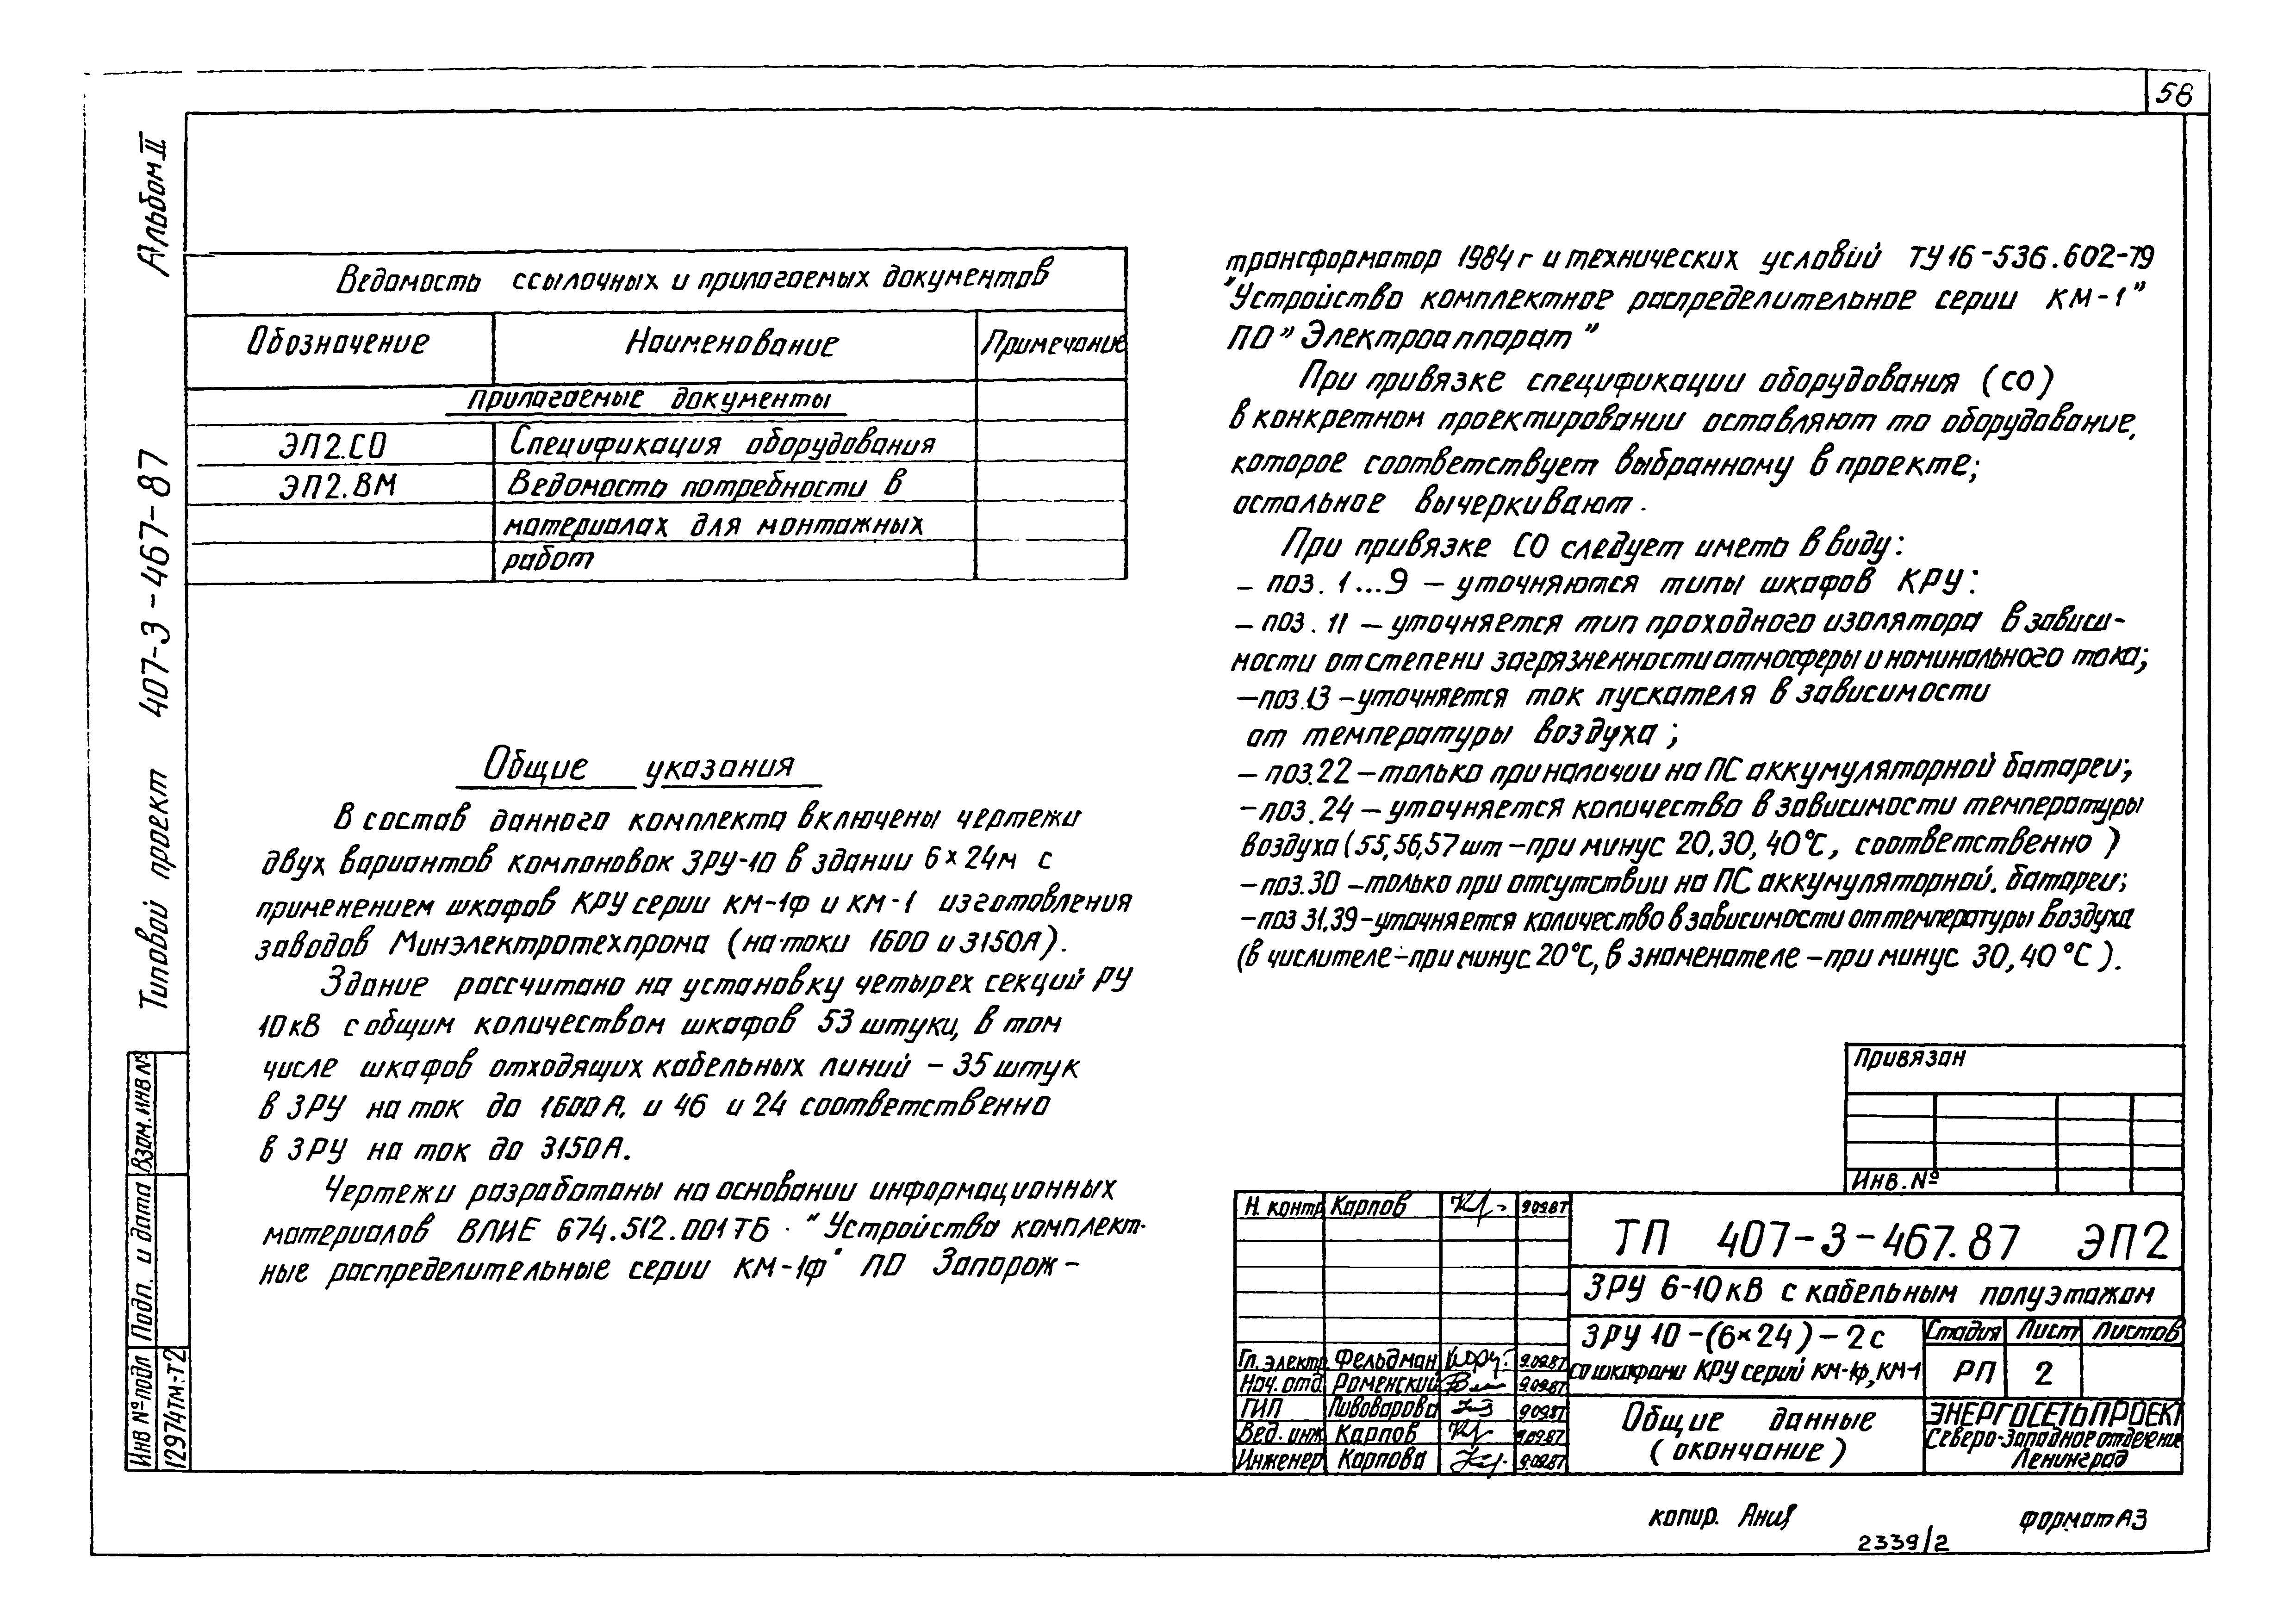 58
Альбом II
Типовой проект 407-3-467-87
Ведомость ссылочных и прилагаемых документов
Обозначение Наименование Примечание
прилагаемые документы
ЭП2.СО Спецификация оборудования
ЭП2.ВМ Ведомость потребности в
материалах для монтажных
работ
Общие указания
В состав данного комплекта включены чертежи
двух вариантов компоновок ЗРУ-10 в здании 6×24м с
применением шкафов КРУ серии КМ-1ф и КМ-1 изготовления
заводов Минэлектротехпрома (на токи 1600 и 3150А).
Здание рассчитано на установку четырех секций РУ
10кВ с общим количеством шкафов 53 штуки, в том
числе шкафов отходящих кабельных линий – 35 штук
в ЗРУ на ток до 1600А, и 46 и 24 соответственно
в ЗРУ на ток до 3150А.
Чертежи разработаны на основании информационных
материалов ВЛИЕ 674.512.001ТБ "Устройства комплект-
ные распределительные серии КМ-1ф" ПО Запорож-
трансформатор 1984г и технических условий ТУ16-536.602-79
"Устройство комплектное распределительное серии КМ-1"
ПО "Электроаппарат"
При привязке спецификации оборудования (СО)
в конкретном проектировании оставляют то оборудование,
которое соответствует выбранному в проекте;
остальное вычеркивают.
При привязке СО следует иметь в виду:
– поз. 1...9 – уточняются типы шкафов КРУ:
– поз. 11 – уточняется тип проходного изолятора в зависи-
мости от степени загрязненности атмосферы и номинального тока;
– поз.13 – уточняется ток пускателя в зависимости
от температуры воздуха;
– поз.22 – только при наличии на ПС аккумуляторной батареи;
– поз.24 – уточняется количество в зависимости температуры
воздуха (55,56,57шт – при минус 20,30,40°С, соответственно)
– поз.30 – только при отсутствии на ПС аккумуляторной. батареи;
– поз 31,39 – уточняется количество в зависимости от температуры воздуха
(в числителе – при минус 20°С, в знаменателе – при минус 30,40°С).
Привязан
Инв. №
Н. контр Карпов 9.09.87
ТП 407-3-467.87 ЭП2
ЗРУ 6-10кВ с кабельным полуэтажом
ЗРУ 10-(6×24)-2с
со шкафами КРУ серий КМ-1ф, КМ-1
Стадия Лист Листов
РП 2
Гл. электр Фельдман 9.09.87
Нач. отд Роменский 9.09.87
ГИП Пивоварова 9.09.87
Вед. инж Карпов 9.09.87
Инженер Карпова 9.09.87
Общие данные
(окончание)
ЭНЕРГОСЕТЬПРОЕКТ
Северо-Западное отделение
Ленинград
Взам. инв №
Подп. и дата
Инв № подл
12974тм-т2
копир.
формат А3
2339/2